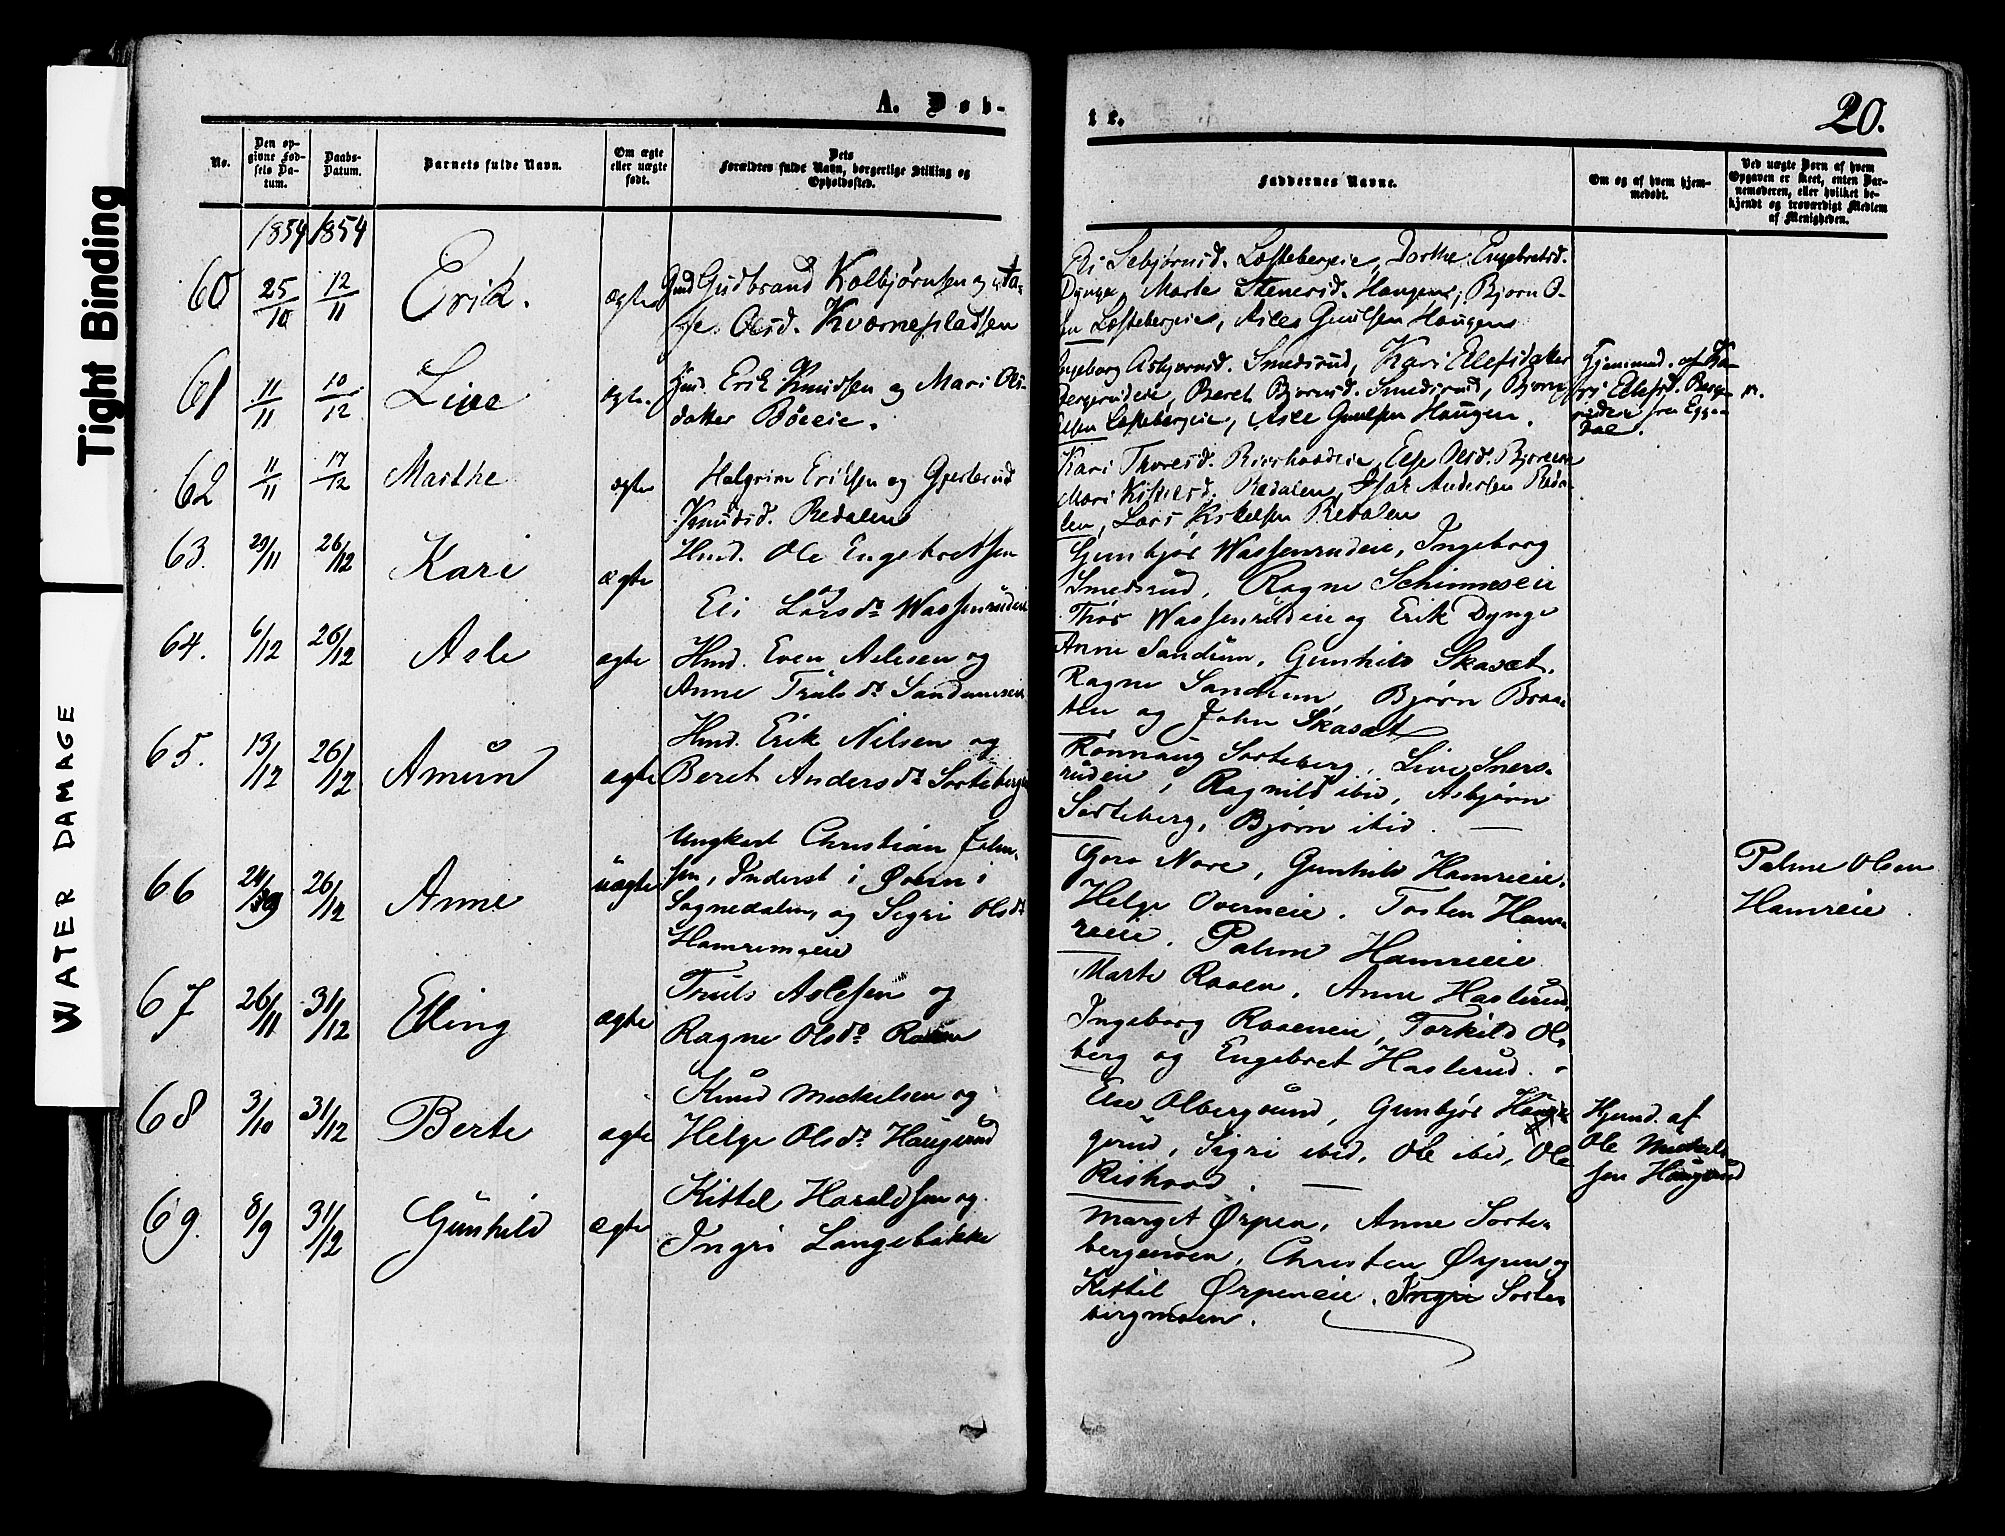 Tight Binding
WATER DAMAGE
A. Døb-
te.
20.
No.
Den op-
givne Fød-
sels Da-
tum.
Daabs-
Datum.
Barnets fulde Navn.
Om ægte
eller uægte
født.
Dets
Forældres fulde Navn, borgerlige Stilling og
Opholdssted.
Faddernes Navne.
Om og af hvem hjem-
medøbt.
Ved uægte Børn af hvem
Opgaven er skeet, enten Bar-
nemoderen, eller hvilket be-
kjendt og troværdigt Medlem
af Menigheden.
1854 1854
60 25/10 12/11 Erik. ægte
Gudbrand Kolbjørnsen og
Olsd. Kværnepladsen
Sebjørnsd. Loftebergeie, Dorthe Engebretsd.
Dynge, Marte Stenersd. Haugen, Bjørn O-
sen Loftebergeie, Asle Gulsen Haugen
61 11/11 10/12 Live ægte.
Erik Knudsen og Mari Ols-
datter Bøeeie.
Ingeborg Asbjørnsd. Smedsrud, Kari Elefsdatter
Bergerudeie, Beret Bjørnsd. Smedsrud, Bjørn
Olsen Loftebergeie, Asle Gulsen Haugen.
Hjemmed. af Ka-
ri Elefsd. Berge-
rudeie fra Egge-
dal.
62 11/11 17/12 Marthe ægte
Halgrim Eriksen og Gjertrud
Knudsd. Redalen
Kari Thoresd. Elje Olsd.
Mari Kittelsd. Redalen, Andersen Reda-
len, Lars Kittelsen Redalen
63. 29/11 26/12 Kari ægte
Hmd. Ole Engebretsen
og
Eli Larsdr Wassenrudeie
Gunbjør Wassenrudeie, Ingeborg
Smedsrud, Ragne Schinneseie
Thor Wassenrudeie og Erik Dynge
64. 6/12 26/12 Asle ægte
Hmd. Even Aslesen og
Anne Trulsdr Sandumseie
Anne Sandum, Gunhild Skasæt.
Ragne Sandum Bjørn Braa-
ten og John Skasæt
65. 13/12 26/12 Amun ægte
Hmd. Erik Nilsen og
Beret Andersdr Sorteberg
Rønnaug Sorteberg, Live Sners-
rudeie, Ragnild ibid, Asbjørn
Sorteberg, Bjørn ibid.
66 26/12 Anne uægte
Ungkarl Christian John-
sen, Inderst i Øvern i
Sognedalen, og Sigri Olsdr
Hamremoeie
Goro Nore, Gunhild Hamreeie.
Helge Overneie. Tosten Ham-
reeie. Palme Hamreeie
Palme Olsen
Hamreeie
67 26/11 31/12 Elling ægte
Truls Aslesen og
Ragne Olsdr Raaen
Marte Raaen, Anne Haslerud,
Ingeborg Raaeneie, Torkild Ol-
berg og Engebret Haslerud.
68 3/10 31/12 Berte ægte
Knud Mickelsen og
Helge Olsdr Haugerud
Else Olbergsund, Gunbjør Hau-
gerud, Sigri ibid, Ole ibid, Ole
Rishovd.
Hjemd. af
Ole Mickel-
sen Haugerud
69. 8/9 31/12 Gunhild ægte
Kittel Haraldsen og
Ingri Langebakke
Marget Ørpen, Anne Sorte-
bergmoen, Christen Ørpen og
Kittil Ørpeneie. Ingri Sorte-
bergmoen.